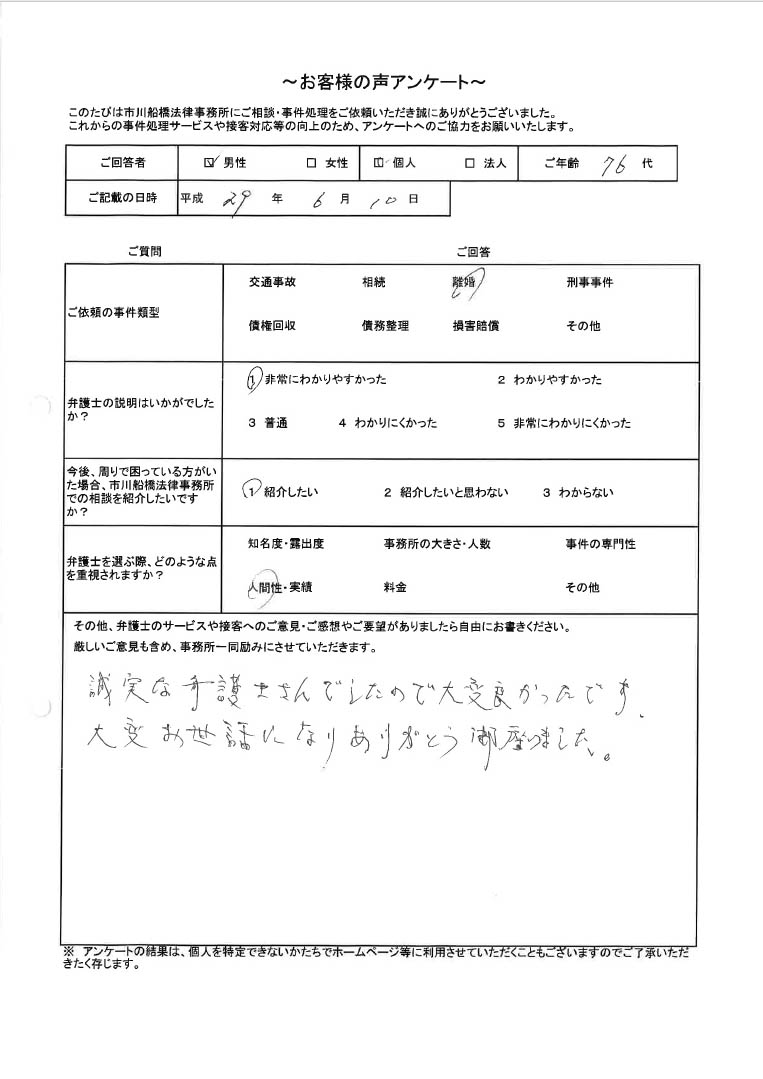 ～お客様の声アンケート～
このたびは市川船橋法律事務所にご相談・事件処理をご依頼いただき誠にありがとうございました。
これからの事件処理サービスや接客対応等の向上のため、アンケートへのご協力をお願いいたします。
ご回答者 ☑ 男性 □ 女性 ☑ 個人 □ 法人 ご年齢 76 代
ご記載の日時 平成 29 年 6 月 10 日
ご質問 ご回答
ご依頼の事件類型
交通事故 相続 離婚 刑事事件
債権回収 債務整理 損害賠償 その他
弁護士の説明はいかがでした
か？
1 非常にわかりやすかった 2 わかりやすかった
3 普通 4 わかりにくかった 5 非常にわかりにくかった
今後、周りで困っている方がい
た場合、市川船橋法律事務所
での相談を紹介したいです
か？
1 紹介したい 2 紹介したいと思わない 3 わからない
弁護士を選ぶ際、どのような点
を重視されますか？
知名度・露出度 事務所の大きさ・人数 事件の専門性
人間性・実績 料金 その他
その他、弁護士のサービスや接客へのご意見・ご感想やご要望がありましたら自由にお書きください。
厳しいご意見も含め、事務所一同励みにさせていただきます。
誠実な弁護士さんでしたので大変良かったです、
大変お世話になりありがとう御座いました。
※ アンケートの結果は、個人を特定できないかたちでホームページ等に利用させていただくこともございますのでご了承いただ
きたく存じます。